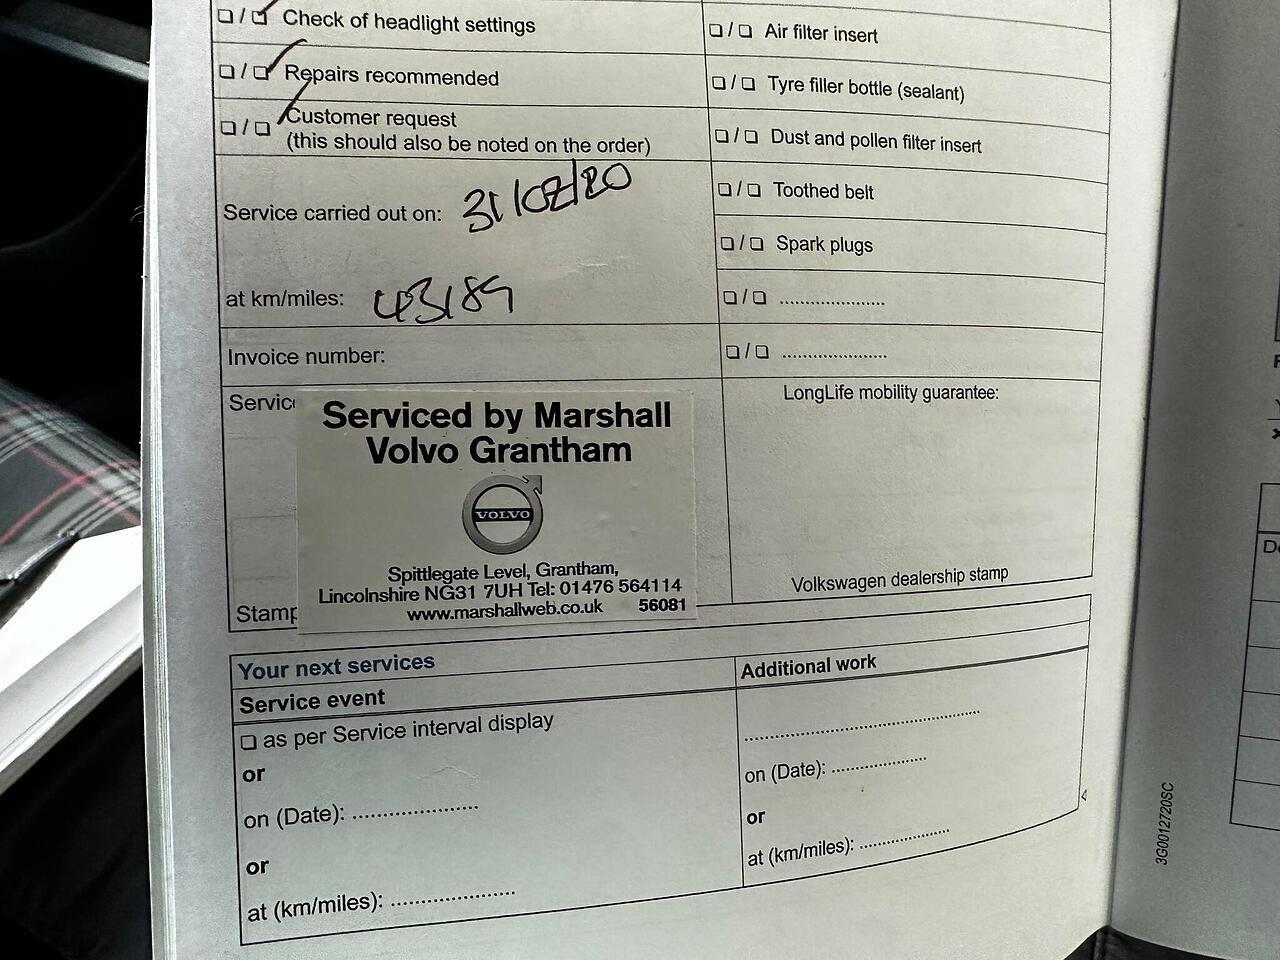 ❏ / ❏ Check of headlight settings
❏ / ❏ Repairs recommended
❏ / ❏ Customer request
(this should also be noted on the order)
Service carried out on: 31/07/20
at km/miles: 43189
Invoice number:
Servic
Serviced by Marshall
Volvo Grantham
VOLVO
Spittlegate Level, Grantham,
Lincolnshire NG31 7UH Tel: 01476 564114
www.marshallweb.co.uk 56081
Stamp
❏ / ❏ Air filter insert
❏ / ❏ Tyre filler bottle (sealant)
❏ / ❏ Dust and pollen filter insert
❏ / ❏ Toothed belt
❏ / ❏ Spark plugs
❏ / ❏ .....................
❏ / ❏ .....................
LongLife mobility guarantee:
Volkswagen dealership stamp
Your next services
Service event
❏ as per Service interval display
or
on (Date): .....................
or
at (km/miles): .....................
Additional work
.......................................
on (Date): ................
or
at (km/miles): ...............
3G0012720SC